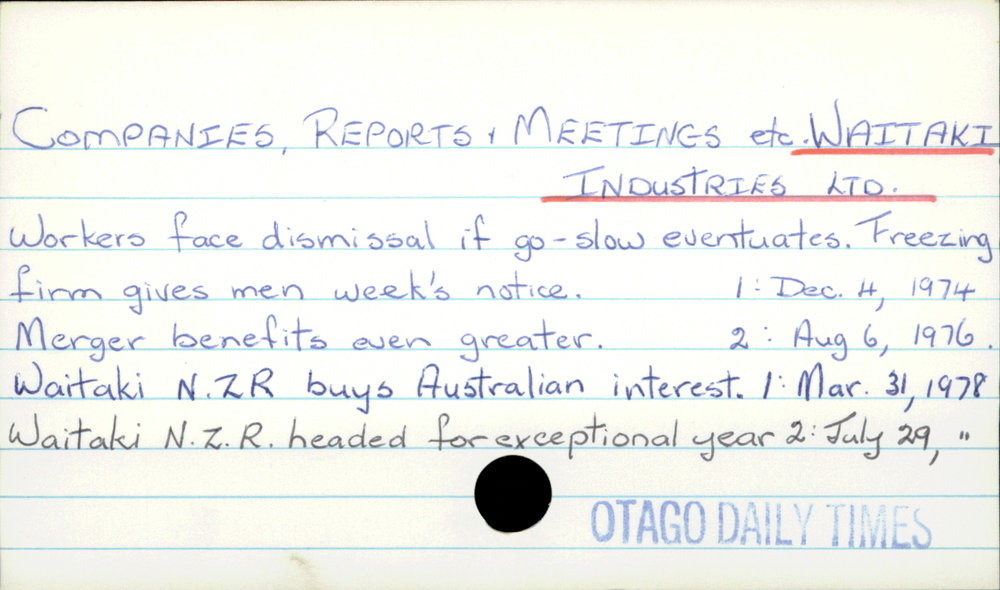 COMPANIES, REPORTS + MEETINGS etc. WAITAKI
INDUSTRIES LTD.
Workers face dismissal if go-slow eventuates. Freezing
firm gives men week's notice. 1: Dec. 4, 1974
Merger benefits even greater. 2: Aug 6, 1976.
Waitaki N.Z.R buys Australian interest. 1: Mar. 31, 1978
Waitaki N.Z.R. headed for exceptional year 2: July 29, "
OTAGO DAILY TIMES